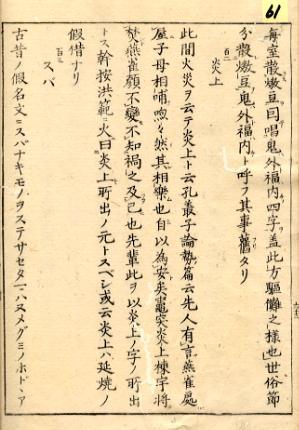 61
每室散燉豆同唱鬼外福内四字蓋此方驅儺之樣也世俗節
分散燉豆鬼外福内ト呼フ其事舊タリ
炎上
此間火災ヲ云テ炎上ト云孔叢子論勢篇云先人有言燕雀處
屋子母相哺呴々然其相樂也自以為安矣竈突炎上棟宇將
焚燕雀顔不變不知禍之及己也先輩此ヲ以炎上ノ字ノ所出
トス幹按洪範ニ火曰炎上所出ノ元トスベシ或云炎上ハ延燒ノ
假借ナリ
スバ
古昔ノ假名文ニスバナキモノヲステサセタマハヌメグミノホド、ア